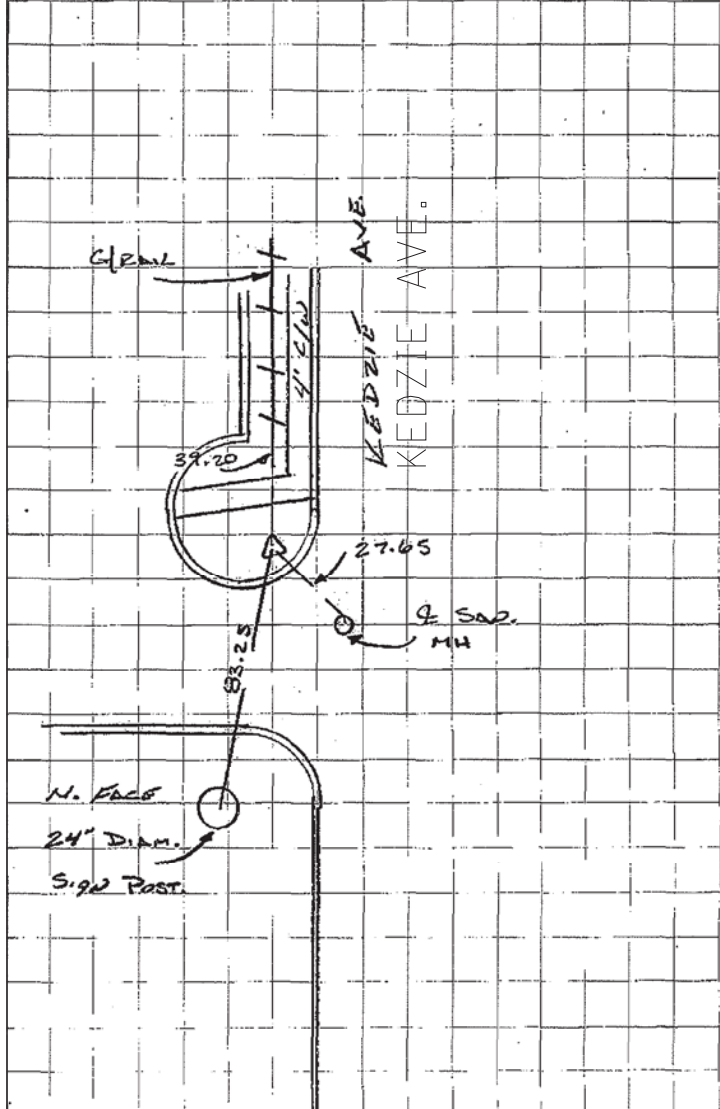 G/RAIL
KEDZIE AVE.
KEDZIE AVE.
4' C/W
39.20
27.65
℄ SAD.
MH
83.25
N. FACE
24" DIAM.
SIGN POST.